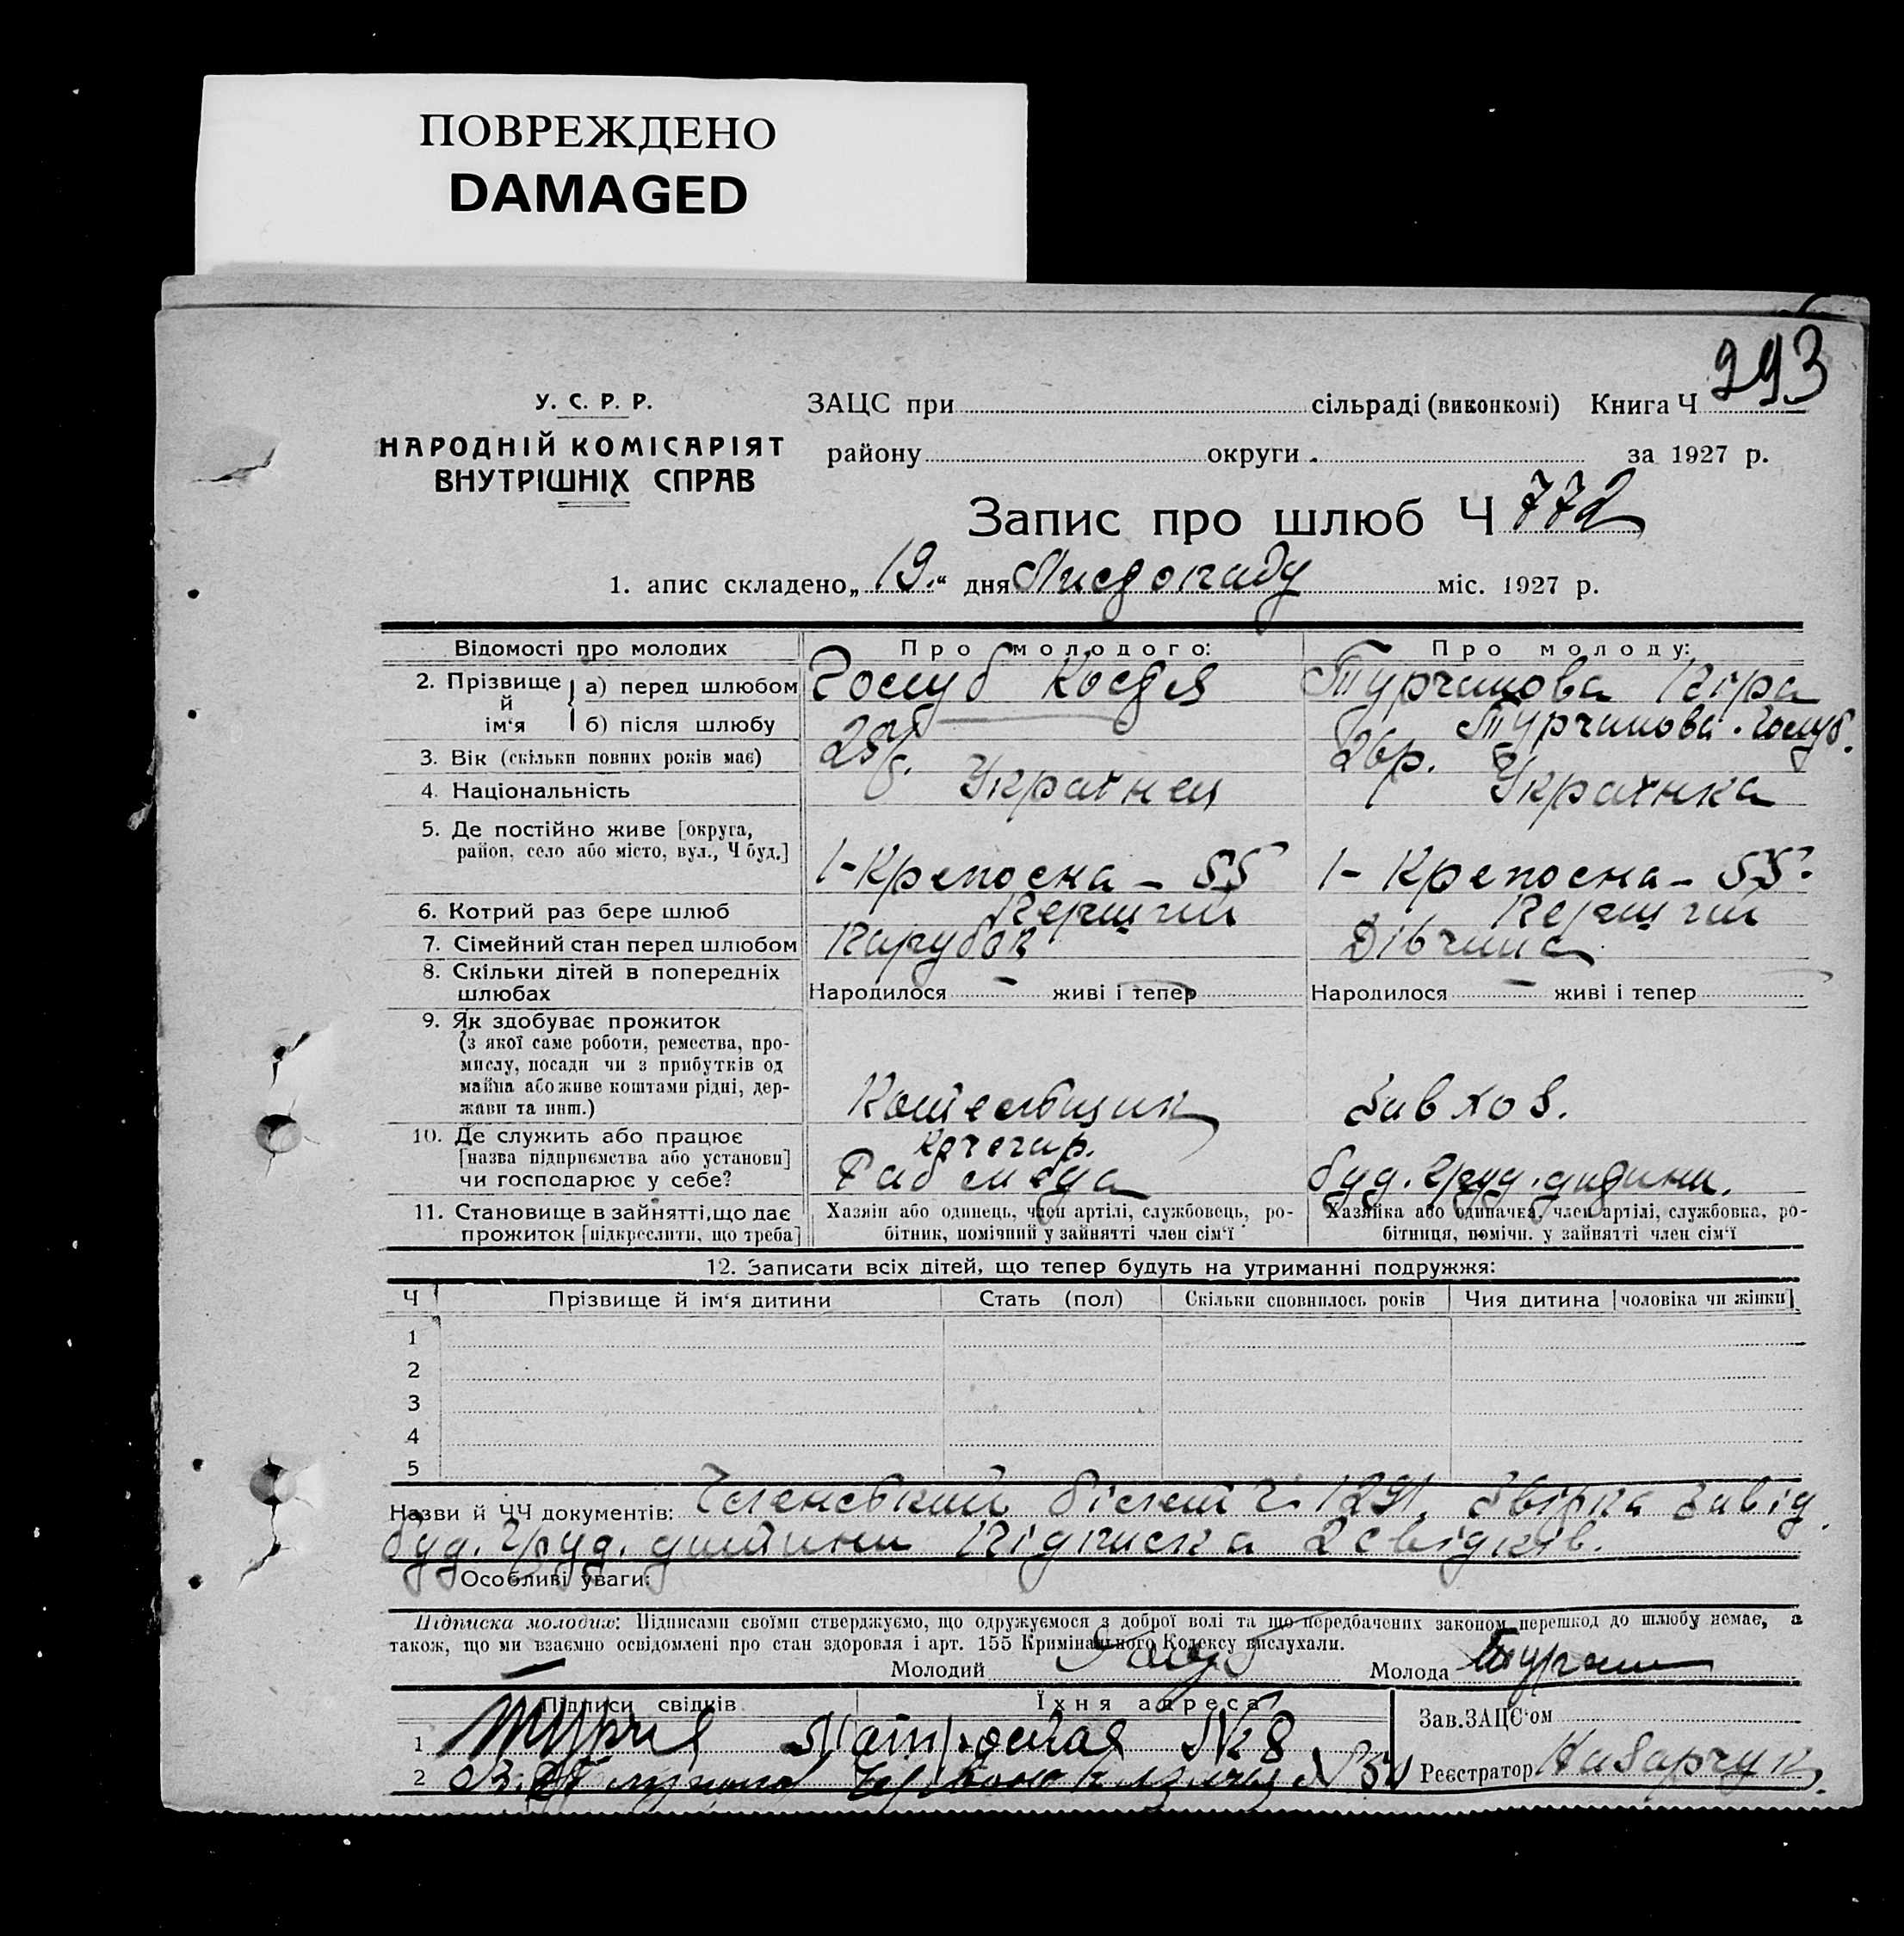 ПОВРЕЖДЕНО
DAMAGED
293
У. С. Р. Р.
НАРОДНІЙ КОМІСАРІЯТ
ВНУТРІШНІХ СПРАВ
ЗАЦС при сільраді (виконкомі) Книга Ч
району округи за 1927 р.
Запис про шлюб Ч 772
1. апис складено „19.“ дня Листопаду міс. 1927 р.
Відомості про молодих
Про молодого:
Про молоду:
2. Прізвище й ім‘я
а) перед шлюбом
Голуб Костя
Турчинова Віра
б) після шлюбу
Турчинова. Голуб.
3. Вік (скільки повних років має)
25 р.
26 р.
4. Національність
Українец
Українка
5. Де постійно живе [округа,
район, село або місто, вул., Ч буд.]
1-Крепосна - 55
1- Крепосна - 55.
6. Котрий раз бере шлюб
Перший
Перший
7. Сімейний стан перед шлюбом
Парубок
Дівчина
8. Скільки дітей в попередніх
шлюбах
Народилося – живі і тепер
Народилося – живі і тепер
9. Як здобуває прожиток
(з якої саме роботи, ремества, про-
мислу, посади чи з прибутків од
майна або живе коштами рідні, дер-
жави та инш.)
Котельщик
Завхоз.
10. Де служить або працює
[назва підприємства або установи]
чи господарює у себе?
Кочегар.
буд. груд. дитини.
11. Становище в зайнятті, що дає
прожиток [підкреслити, що треба]
Хазяін або одинець, член артілі, службовець, ро-
бітник, помічний у зайнятті член сім‘ї
Хазяйка або одиначка, член артілі, службовка, ро-
бітниця, помічн. у зайнятті член сім‘ї
12. Записати всіх дітей, що тепер будуть на утриманні подружжя:
Ч Прізвище й ім‘я дитини Стать (пол) Скільки сповнилось років Чия дитина [чоловіка чи жінки]
1
2
3
4
5
Назви й ЧЧ документів: Членський білет Ч 1291. Завід
буд. груд. дитини Підписка 2 свідків.
Особливі уваги:
Підписка молодих: Підписами своїми стверджуємо, що одружуємося з доброї волі та що передбачених законом перешкод до шлюбу немає, а
також, що ми взаємно освідомлені про стан здоровля і арт. 155 Кримінального Кодексу вислухали.
Молодий Голуб Молода
Підписи свідків
Їхня адреса
Зав. ЗАЦС‘ом
1 №8
2
Реєстратор Назарчук